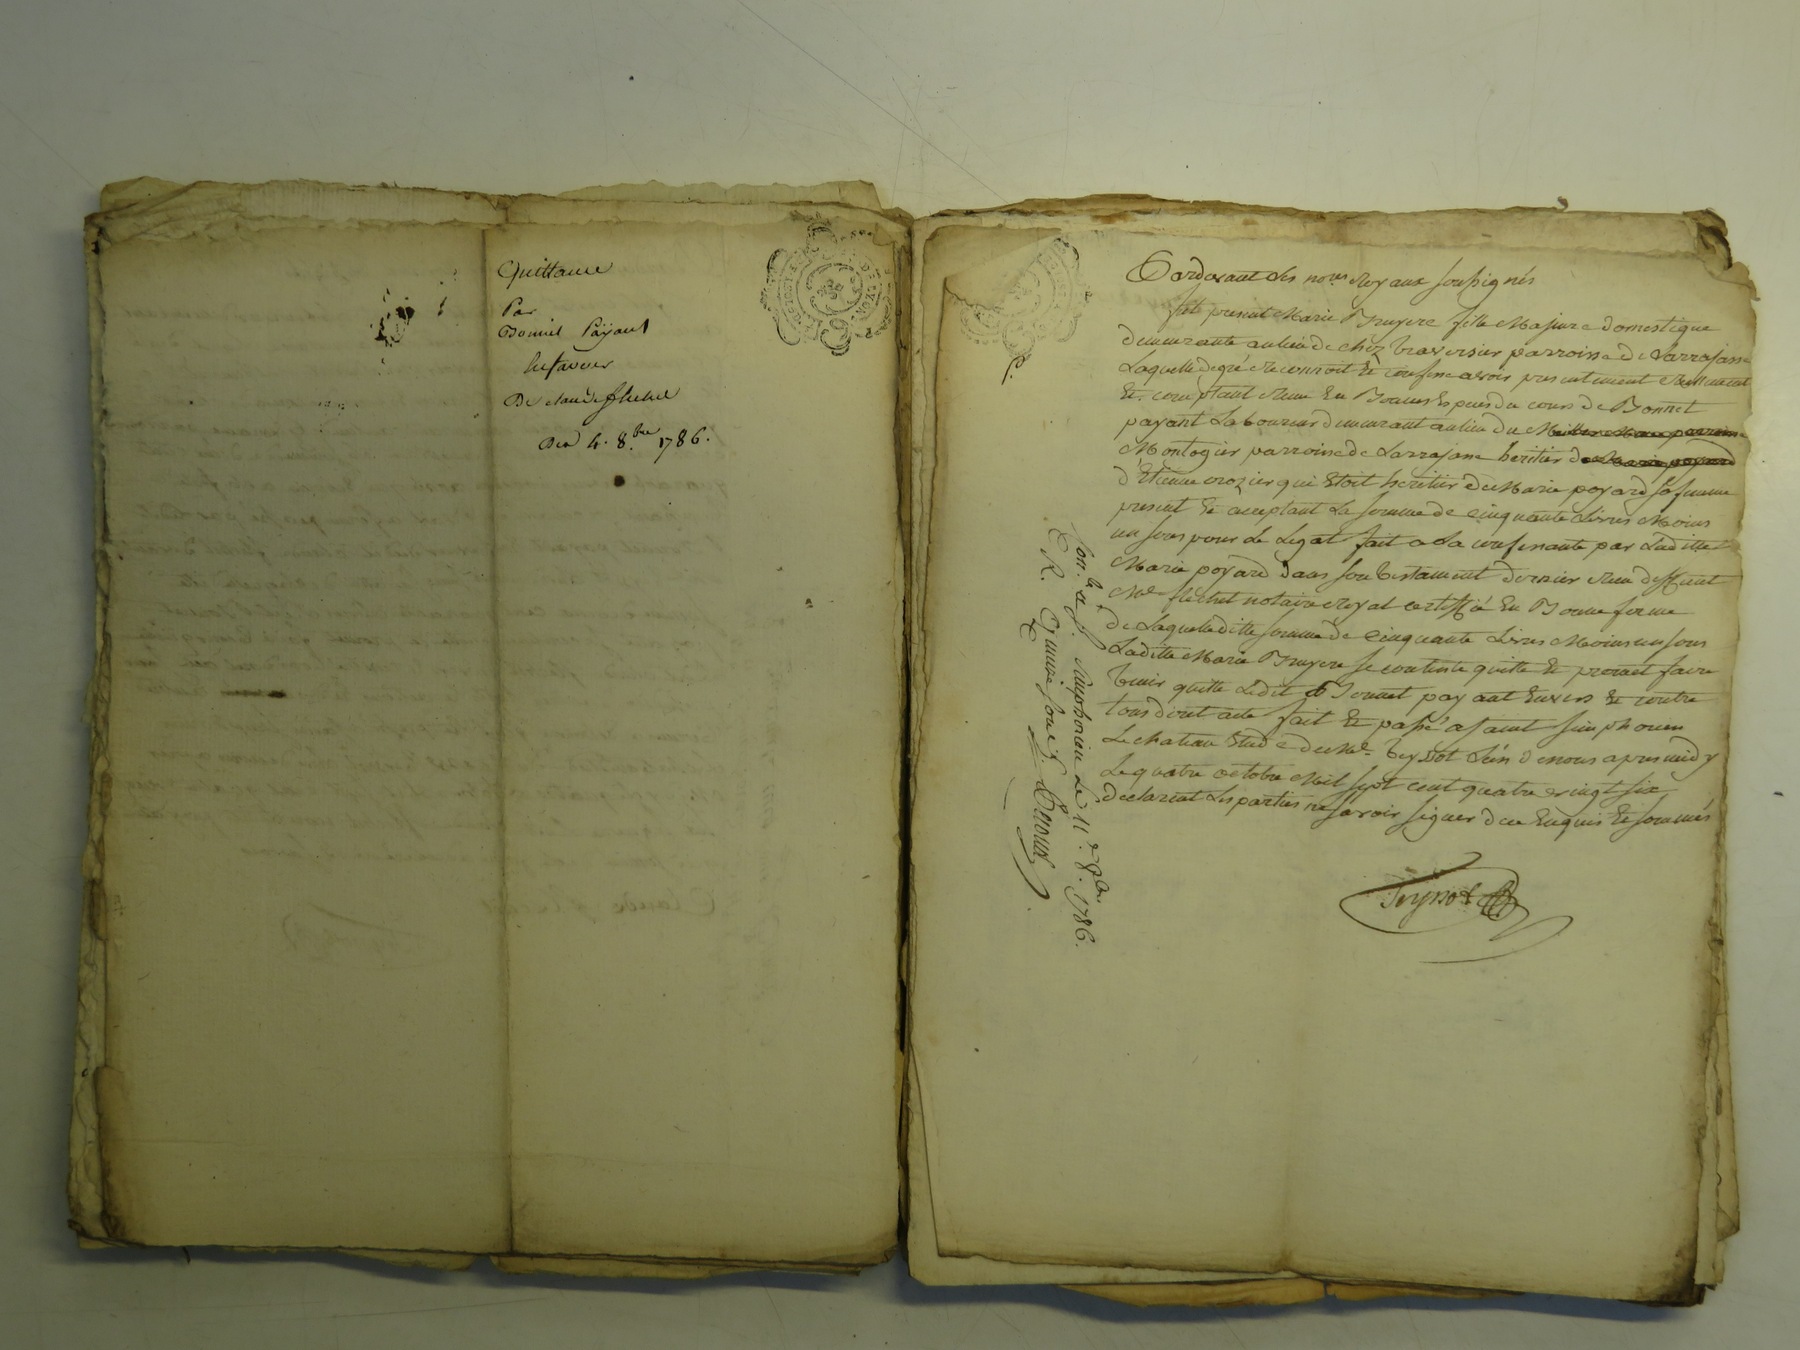 Quittance
Par
Bonnet Païant
En faveur
De claude flechet
Du 4. 8.bre 1786.
Pardevant les nores Royaux soussignés
fut present Marie Bruyere fille Majeure domestique
demeurante au lieu de chez traversier parroisse de Larrajasse
Laquelle de gré a reconnoit et confesse avoir presentement reellement
Et comptant Reçu En Bonnes Especes du cours de Bonnet
payant Laboureur demeurant au lieu du
Montogier parroisse de Larrajasse heritier de
d'Etienne crozier qui Etoit heritier de Marie poyard sa femme
present Et acceptant La somme de cinquante Livres Moins
un sous pour Le Legat fait a La confessante par Laditte
Marie poyard dans son testament dernier Reçu deffunt
Me flechet notaire Royal certiffié En Bonne forme
de Laquelle ditte somme de cinquante Livres Moins un sous
Laditte Marie Bruyere se contente quitte Et promet faire
tenir quitte Ledit Bonnet payant Envers Et contre
tous dont acte fait Et passé a saint simphorien
Le chateau Etude de Me teyssot L'un de nous apres midy
Le quatre octobre Mil sept cent quatre vingt six
declarent Les parties ne savoir signer de ce Enquis Et sommés
Teyssot
Con. le a St. simphorien Le 11 8.bre 1786.
R. quinze sous